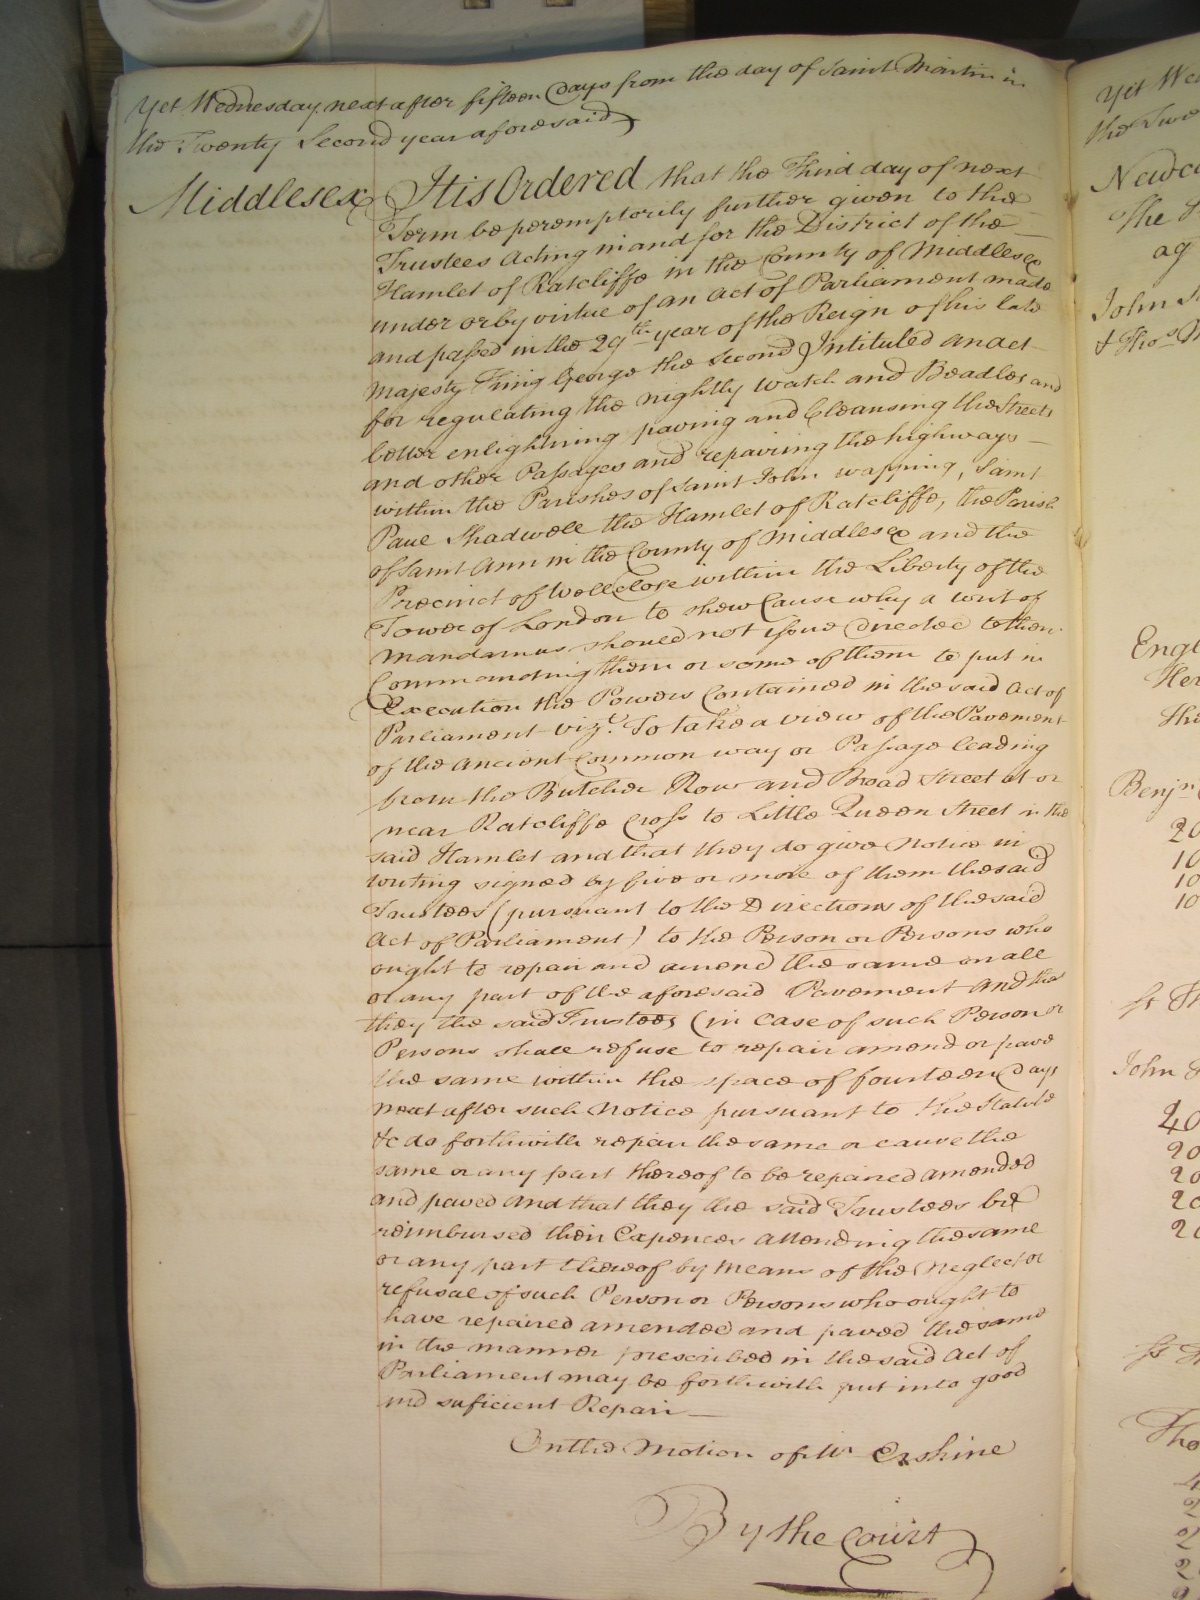 Yet Wednesday next after fifteen Days from the day of Saint Martin in
the Twenty Second year aforesaid
Middlesex It is Ordered that the Third day of next
Term be peremptorily further given to the
Trustees Acting in and for the District of the
Hamlet of Ratcliffe in the County of Middlesex
under or by virtue of an Act of Parliament made
and passed in the 29th year of the Reign of his late
Majesty King George the Second Intituled an act
for regulating the nightly Watch and Beadles and
better enlightning paving and Cleansing the Streets
and other Passages and repairing the highways
within the Parishes of Saint John Wapping, Saint
Paul Shadwell the Hamlet of Ratcliffe, the Parish
of Saint Ann in the County of Middlesex and the
Precinct of Wellclose within the Liberty of the
Tower of London to shew Cause why a writ of
Mandamus should not issue Directed to them
Commanding them or some of them to put in
Execution the Powers Contained in the said Act of
Parliament vizt. To take a view of the Pavement
of the ancient Common way or Passage leading
from the Butcher Row and Broad Street at or
near Ratcliffe Cross to Little Queen Street in the
said Hamlet and that they do give Notice in
writing signed by five or more of them the said
Trustees (pursuant to the Directions of the said
Act of Parliament) to the Person or Persons who
ought to repair and amend the same or all
or any part of the aforesaid Pavement And the
they the said Trustees (in Case of such Person or
Persons shall refuse to repair amend or pave
the same within the space of fourteen Days
next after such Notice pursuant to the Statute
&c do forthwith repair the same or cause the
same or any part thereof to be repaired amended
and paved And that they the said Trustees be
reimbursed their Expences attending the same
or any part thereof by Means of the Neglect or
refusal of such Person or Persons who ought to
have repaired amended and paved the same
in the manner prescribed in the said Act of
Parliament may be forthwith put into good
and suficient Repair
On the Motion of Mr Erskine
By the Court
Yet
the
Newca
The
ag
John
& Thos
Engl
Her
Thi
Benjn
20
10
10
10
John
40
20
20
20
20
Tho